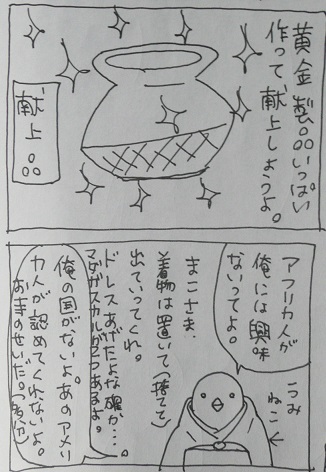 黄金製。○○いっぱい
作って、献上しようよ。
献上。○○
アフリカ人が
俺には興味
ないってよ。
うみ
ねこ
まこさま、
着物は置いて(捨てて)
出ていってくれ。
ドレスあげたよな確か…。
マダガスカルが2つあるよ。
俺の国がないよ。あのアメリ
カ人が認めてくれないよ。
お寺のせいだ。(多分)